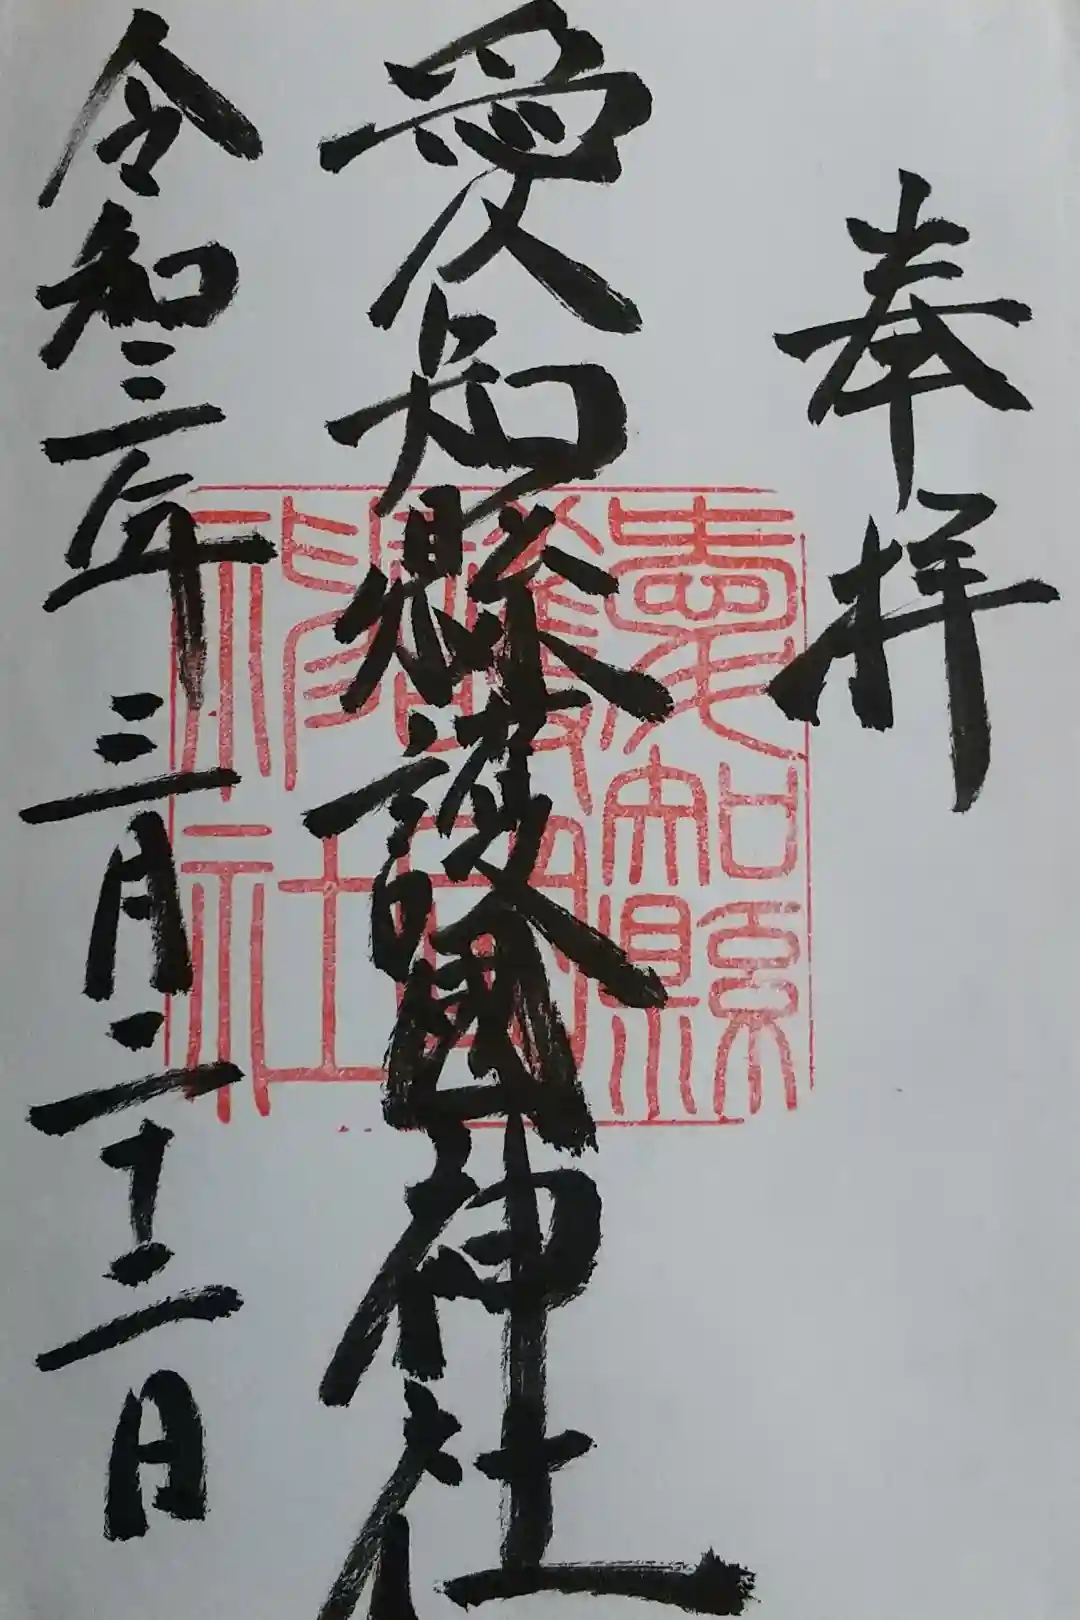 奉拝
愛知縣護國神社
令和三年三月二十二日
愛知縣
護國
神社